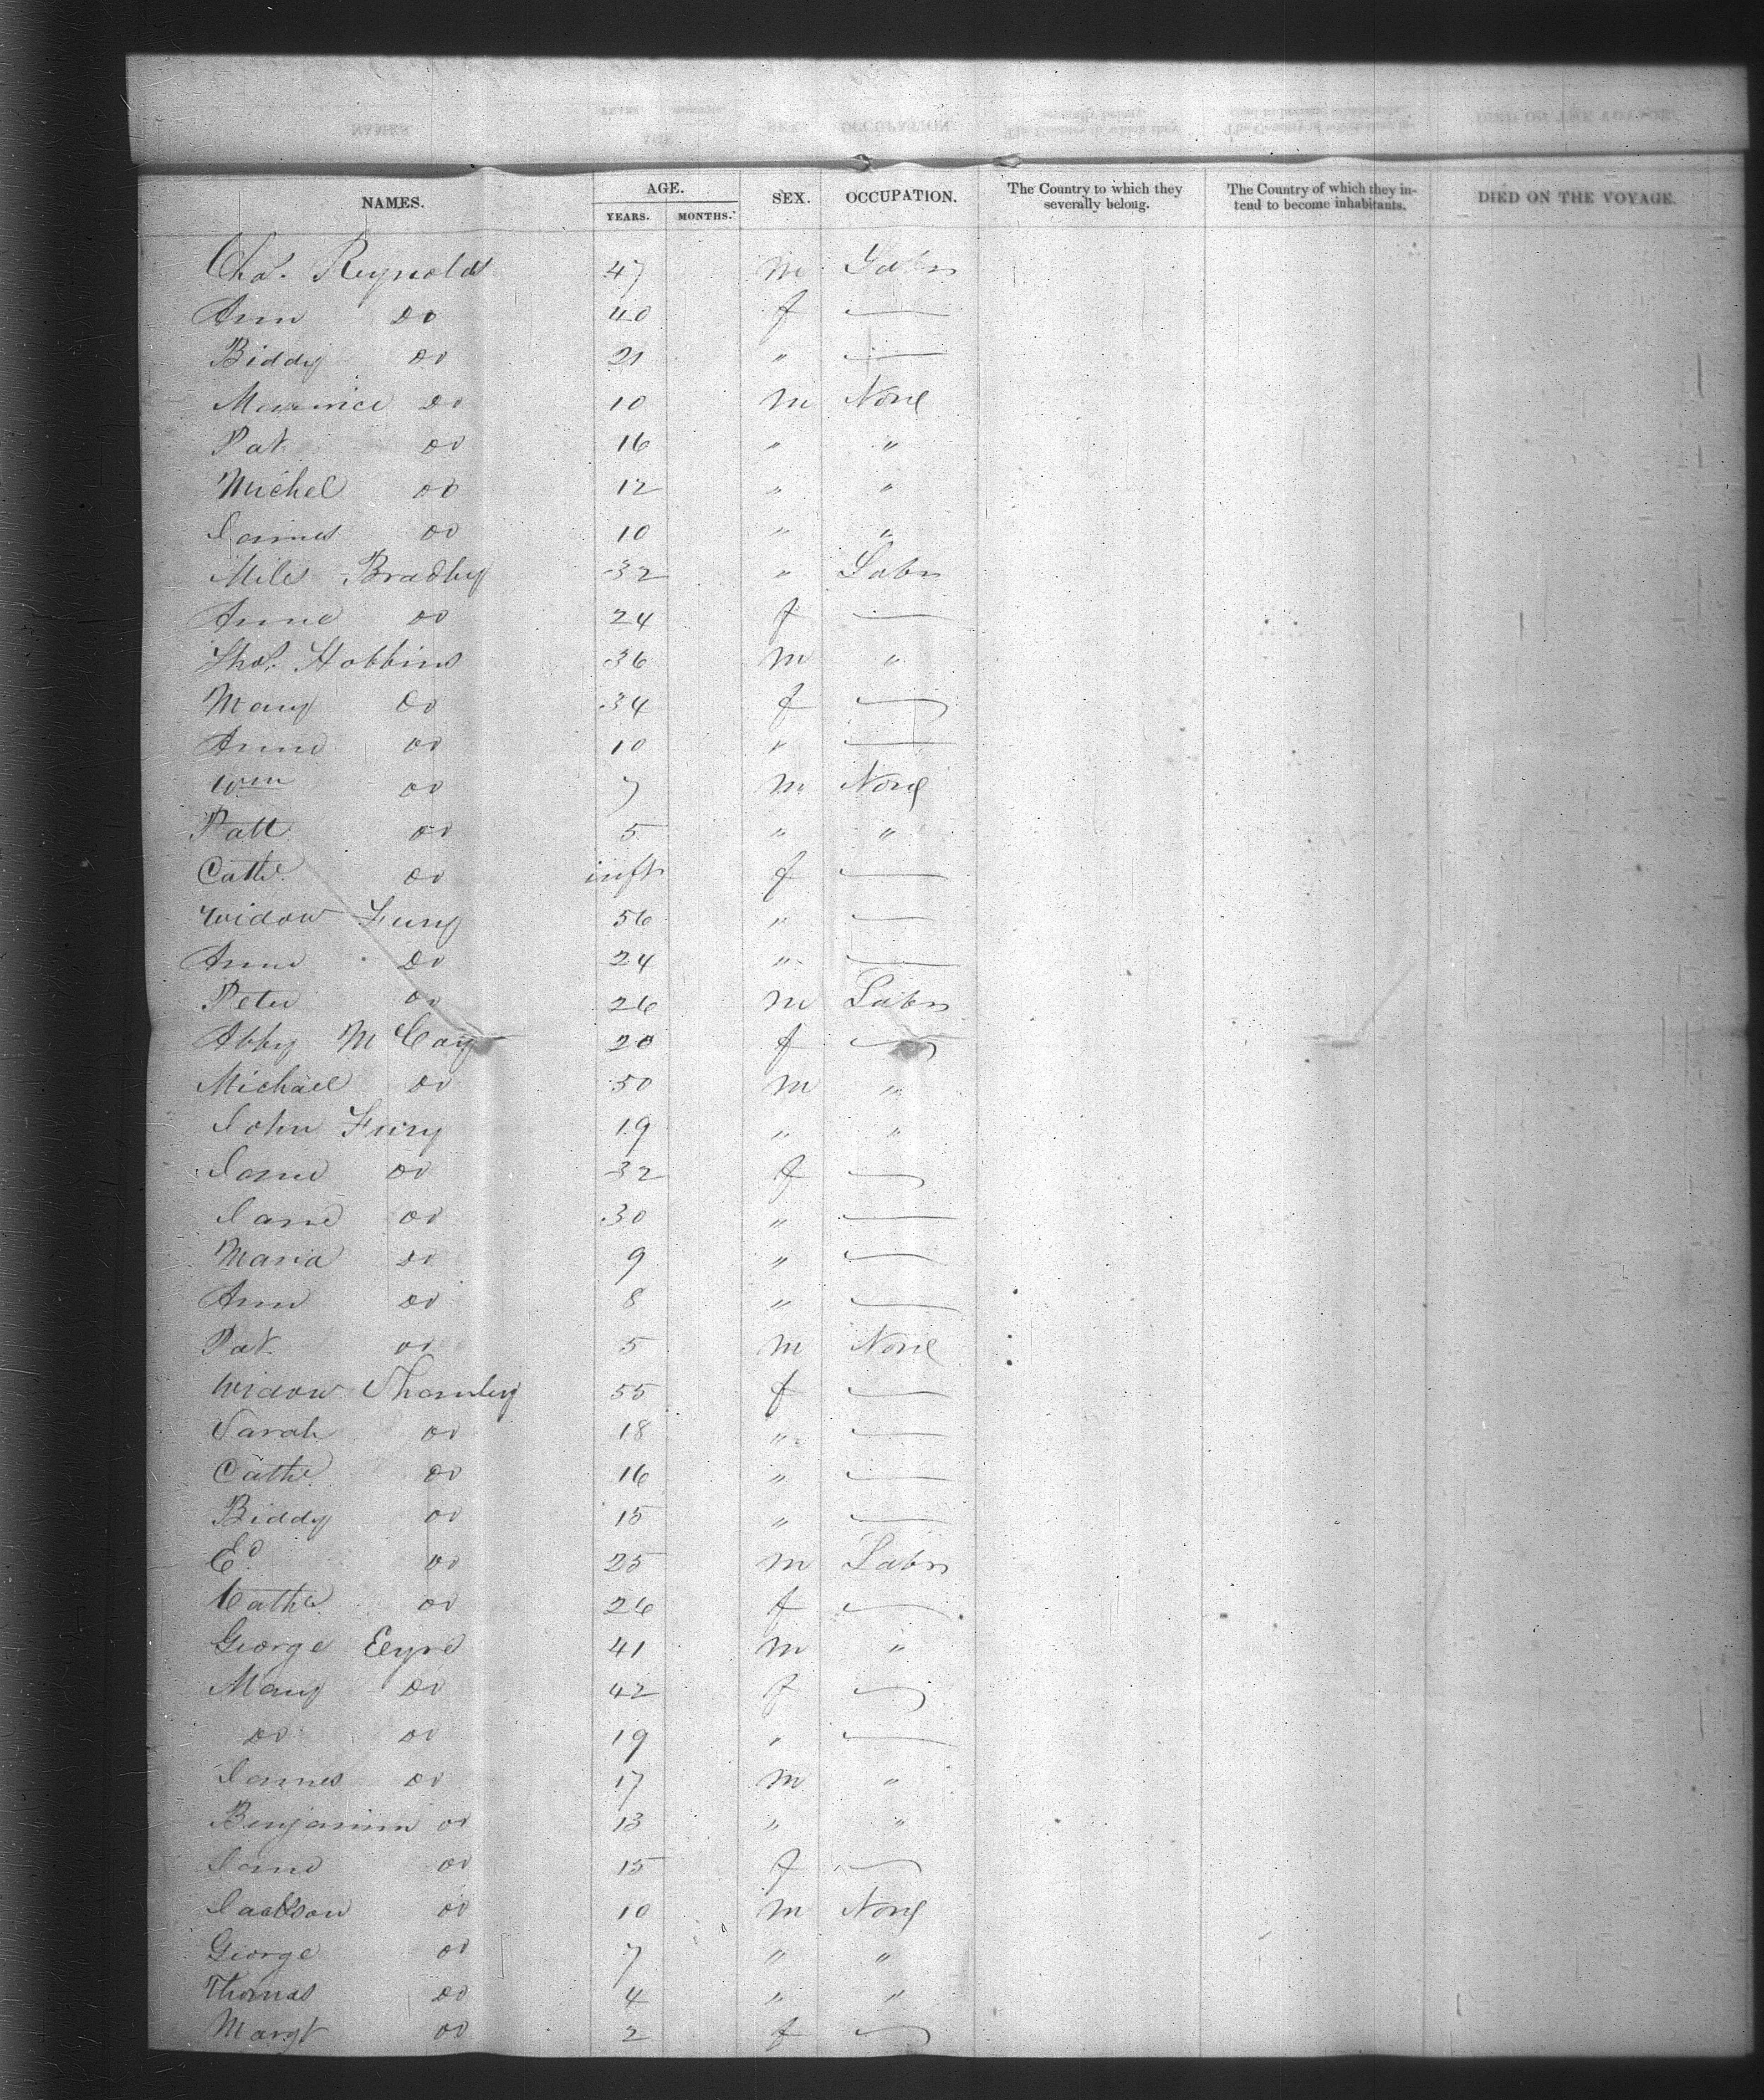 NAMES. AGE. YEARS. MONTHS. SEX. OCCUPATION. The Country to which they severally belong. The Country of which they intend to become inhabitants. DIED ON THE VOYAGE.
Chas. Reynolds 47 m Labr
Ann Do 40 f —
Biddy Do 21 " —
Maurice Do 10 m None
Pat Do 16 " "
Michel Do 12 " "
James Do 10 " "
Mile Bradley 32 " Labr
Anne Do 24 f —
Thos. Hobbins 36 m "
Mary Do 34 f —
Anne Do 10 " —
Wm Do 7 m None
Patt Do 5 " "
Cathe. Do inft f —
Widow Fury 56 " —
Anne Do 24 " —
Peter Do 26 m Labr
Abby McCay 20 f —
Michael Do 50 m "
John Fury 19 " "
Jane Do 32 f —
Jane Do 30 " —
Maria Do 9 " —
Ann Do 8 " —
Pat Do 5 m None
Widow Thornley 55 f —
Sarah Do 18 " —
Cathe. Do 16 " —
Biddy Do 15 " —
Ed. Do 25 m Labr
Cathe. Do 26 f —
George Eyre 41 m "
Mary Do 42 f —
Do Do 19 " —
James Do 17 m "
Benjamin Do 13 " "
Jane Do 15 f —
Jackson Do 10 m None
George Do 7 " "
Thomas Do 4 " "
Margt Do 2 f —